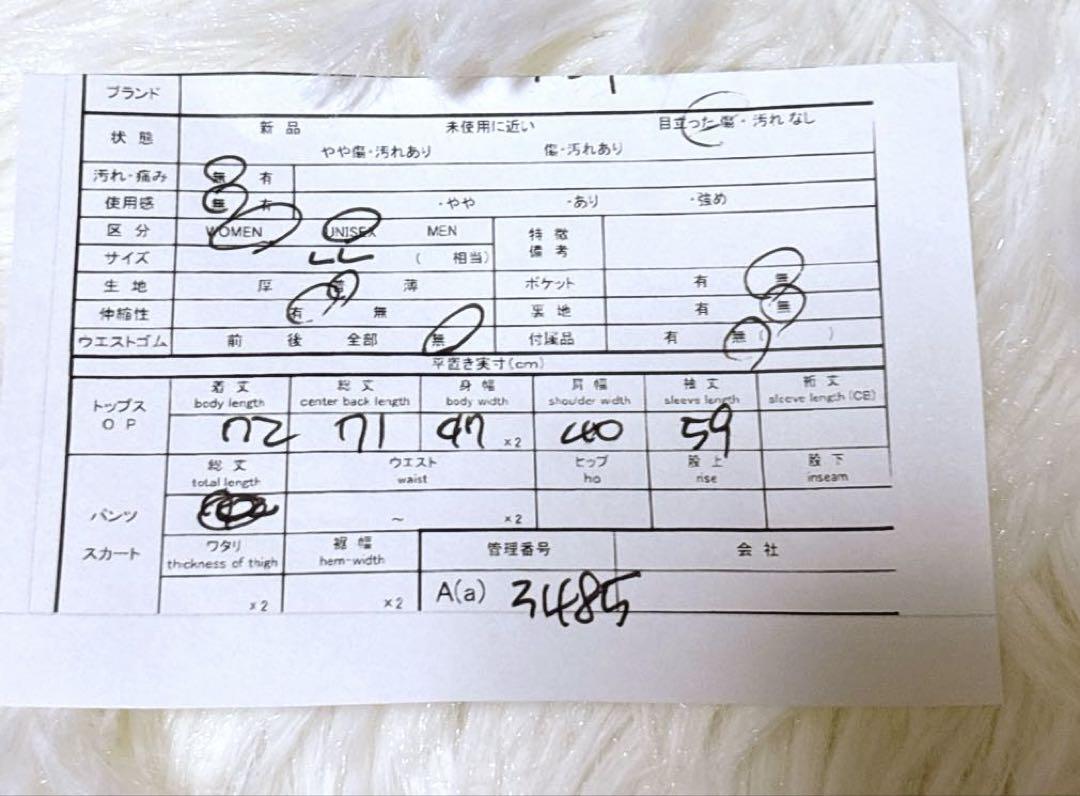 ブランド
状態 新品 未使用に近い 目立った傷・汚れなし
やや傷・汚れあり 傷・汚れあり
汚れ・痛み 無 有
使用感 無 有 ・やや ・あり ・強め
区分 WOMEN UNISEX MEN 特徴 備考
サイズ LL ( 相当)
生地 厚 普 薄 ポケット 有 無
伸縮性 有 無 裏地 有 無
ウエストゴム 前 後 全部 無 付属品 有 無 ( )
平置き実寸(cm)
トップス OP
着丈 総丈 身幅 肩幅 袖丈 裄丈
body length center back length body width shoulder width sleeve length sleeve length (CB)
72 71 47 ×2 40 59
パンツ スカート
総丈 ウエスト ヒップ 股上 股下
total length waist hip rise inseam
～ ×2
ワタリ 裾幅 管理番号 会社
thickness of thigh hem-width
×2 ×2 A(a) 3485